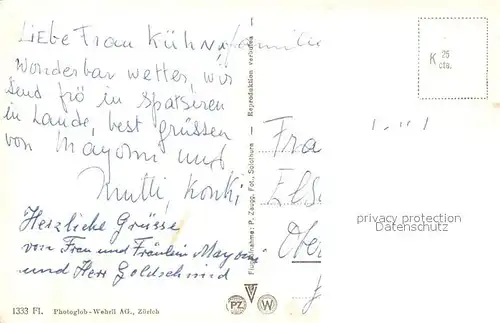 Liebe Frau Kühn, familie
Wonderbar wetter, wir
send frö in spatsiren
in Laude, best grüssen
von Mayomi und
Mutti, Konki
Herzliche Grüsse
von Frau und Fräulein Mayomi
und Herr Goldschmid
1333 Fl. Photoglob-Wehrli AG., Zürich
Flugaufnahme: P. Zaugg, Fot., Solothurn — Reproduktion verboten
PZ W
K 25 cts.
Fra
Else
Obe
privacy protection
Datenschutz